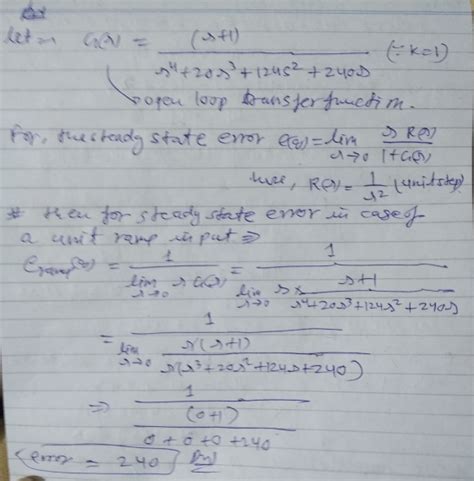 Let G(s) = (s+1) / (s⁴+20s³+124s²+240s) (∵ k=1)
open loop transfer function.
For, the steady state error e(∞) = lim s→0 sR(s) / 1+G(s)
here, R(s) = 1/s² (unit step)
* then for steady state error in case of
a unit ramp input ⇒
e ramp(∞) = 1 / lim s→0 sG(s) = 1 / lim s→0 s × s+1 / s⁴+20s³+124s²+240s
= 1 / lim s→0 s(s+1) / s(s³+20s²+124s+240)
⇒ 1 / (0+1) / 0+0+0+240
error = 240 Ans